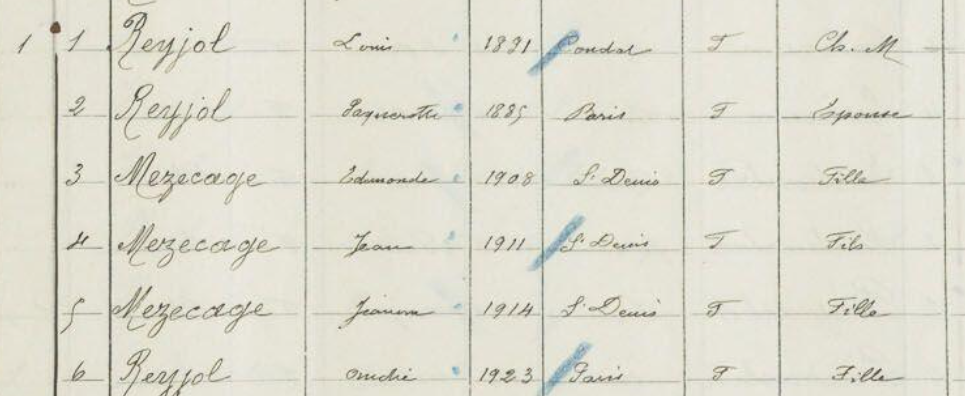 1 1 Reyjol Louis 1891 Condat F Ch. M
2 Reyjol Paquerette 1885 Paris F Epouse
3 Mezecage Edmonde 1908 St Denis F Fille
4 Mezecage Jean 1911 St Denis F Fils
5 Mezecage Jeanne 1914 St Denis F Fille
6 Reyjol 1923 Paris F Fille